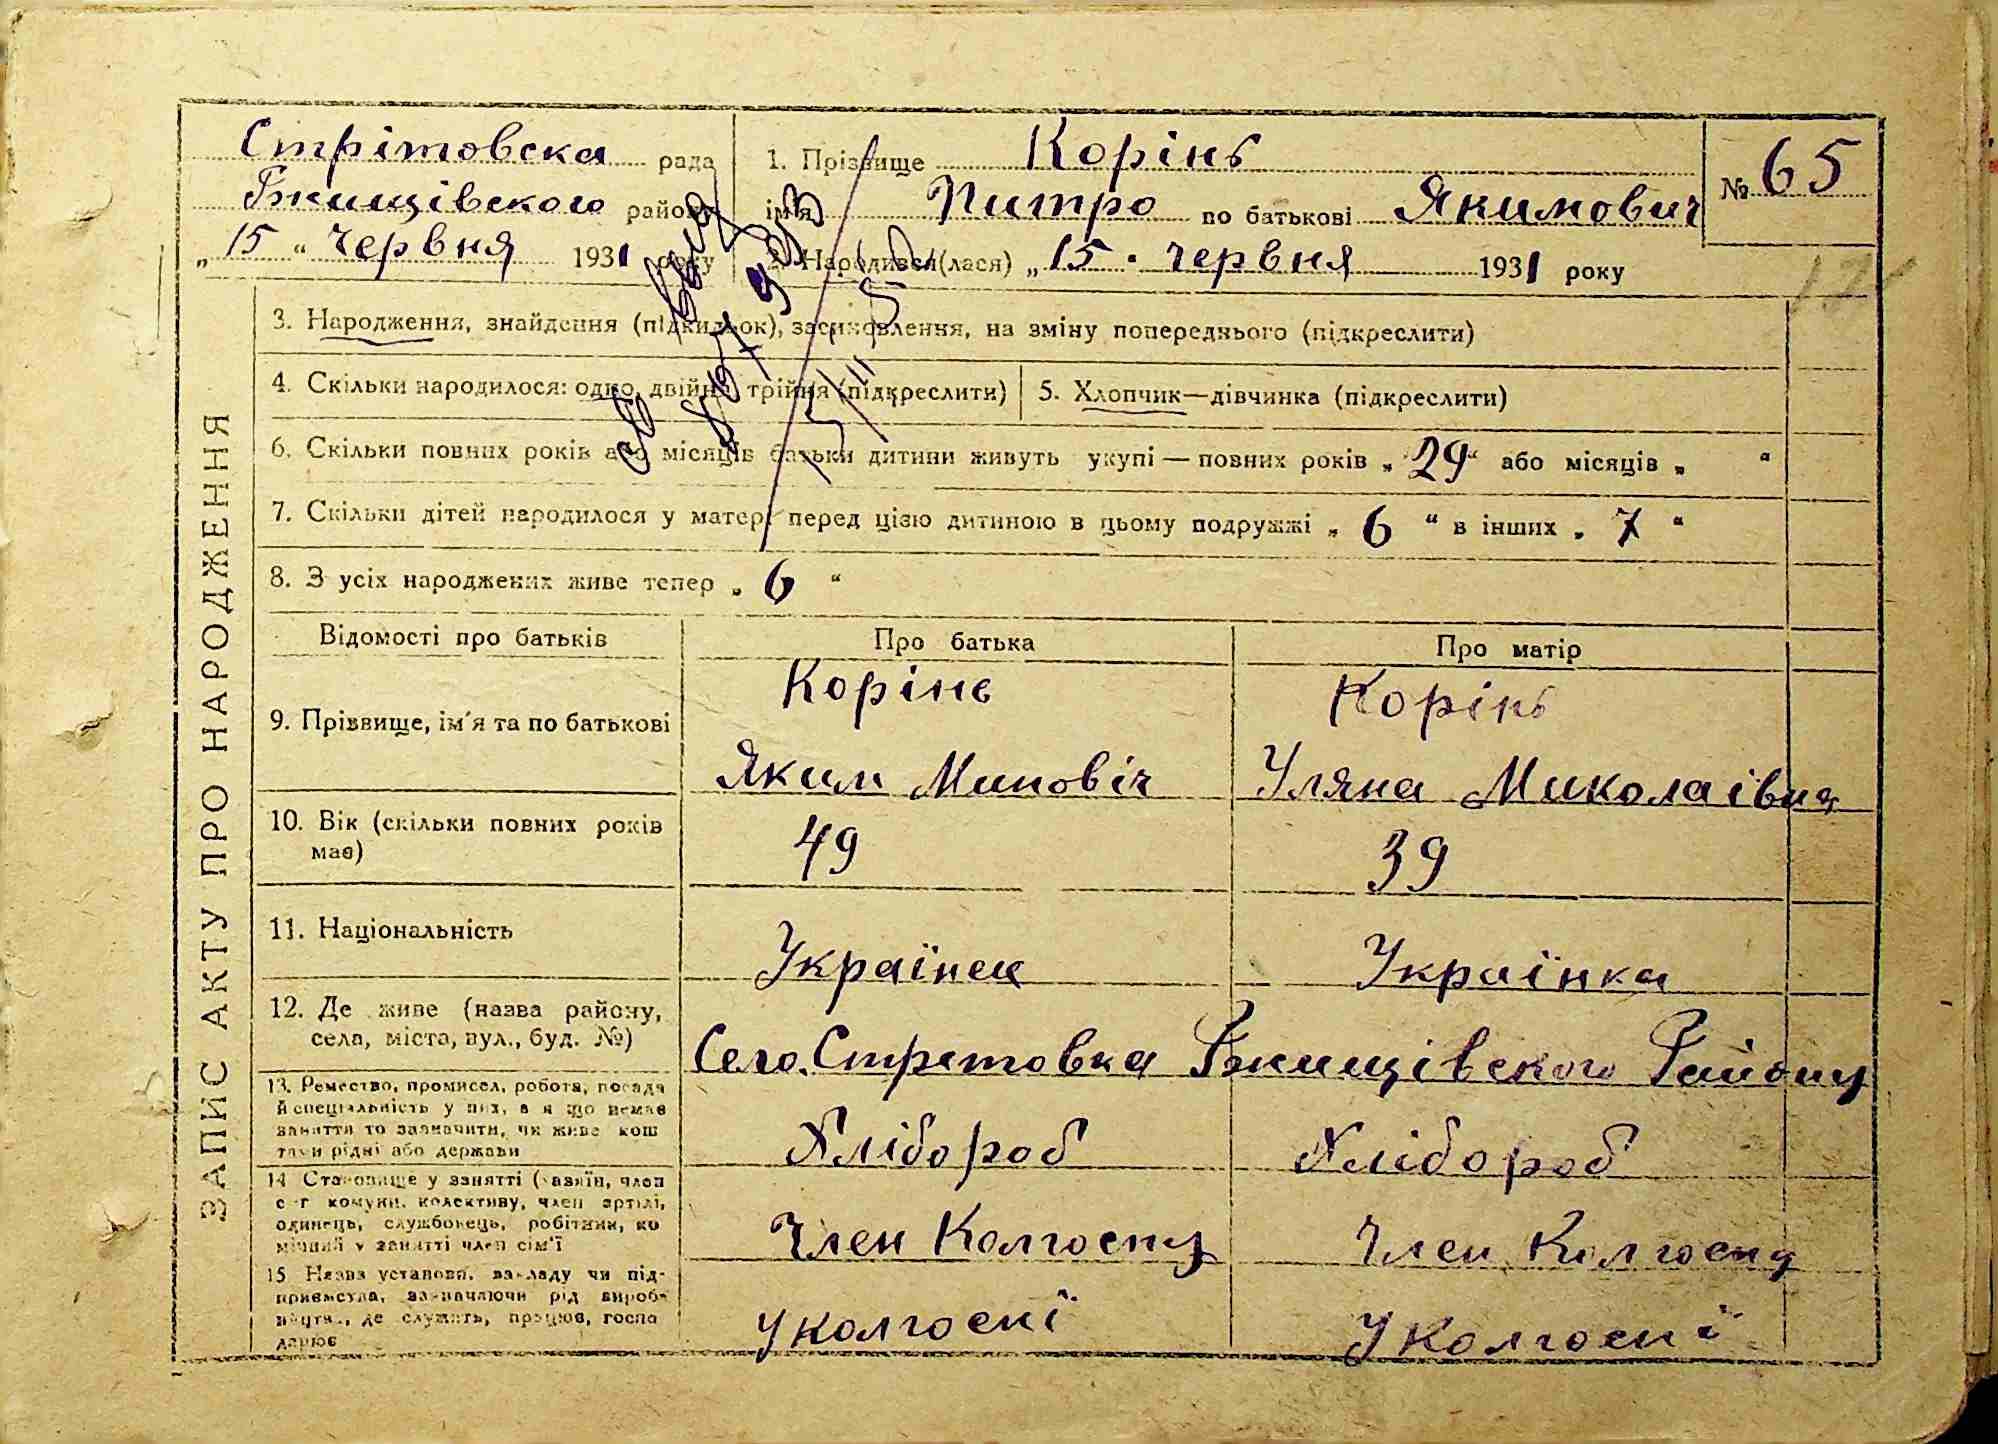 ЗАПИС АКТУ ПРО НАРОДЖЕННЯ
Стрітовска рада
Ржищівского району
„15“ червня 1931 року
1. Прізвище Корінь
ім'я Питро по батькові Якимович
2. Народився(лася) „15. червня 1931 року
№ 65
3. Народження, знайдення (підкидьок), засиновлення, на зміну попереднього (підкреслити)
4. Скільки народилося: одно, двійня, трійня (підкреслити)
5. Хлопчик—дівчинка (підкреслити)
6. Скільки повних років або місяців батьки дитини живуть укупі — повних років „29“ або місяців „ “
7. Скільки дітей народилося у матері перед цією дитиною в цьому подружжі „6“ в інших „7“
8. З усіх народжених живе тепер „6“
Відомості про батьків
Про батька
Про матір
9. Прізвище, ім'я та по батькові
Корінь
Яким Миновіч
Корінь
Уляна Миколаівна
10. Вік (скільки повних років
має)
49
39
11. Національність
Українец
Українка
12. Де живе (назва району,
села, міста, вул., буд. №)
Село. Стретовка Ржищівского Району
13. Ремество, промисел, робота, посада
й спеціяльність у них, а я що немає
заняття то зазначити, чи живе кош
тами рідні або держави
Хлібороб
Хлібороб
14 Становище у занятті (хазяїн, член
с-г комуни, колективу, член артілі,
одинець, службовець, робітник, по
мічний у занятті член сім'ї
Член Колгоспу
Член Колгоспу
15 Назва установи, закладу чи під-
приємства, зазначаючи рід вироб-
ництва, де служить, працює, госпо
дарює
У колгоспі
У колгоспі